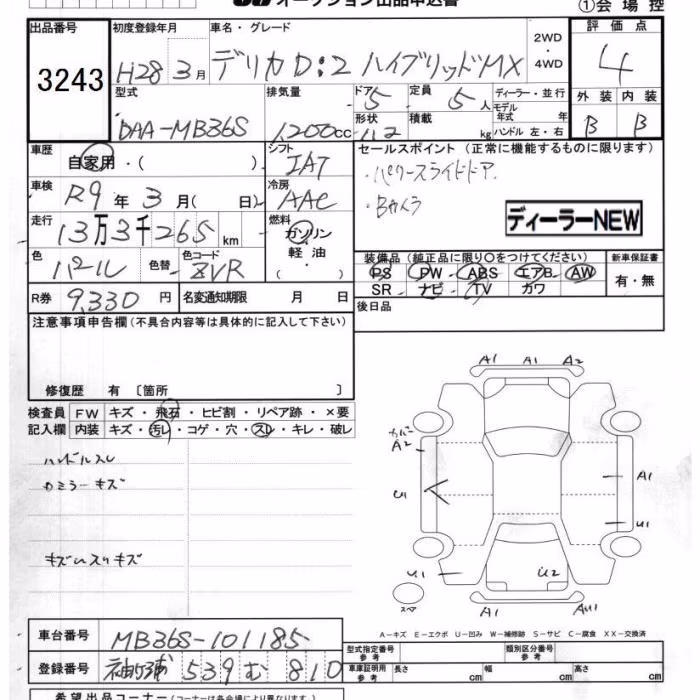 オークション出品申込書
①会場控
出品番号
3243
初度登録年月
H28 3月
車名・グレード
デリカD:2 ハイブリッドMX
2WD
4WD
評価点
4
型式
DAA-MB36S
排気量
1200cc
ドア
5
形状
定員
5人
積載
kg
ディーラー・並行
モデル
年式 年
ハンドル 左・右
外装 内装
B B
車歴
自家用・( )
シフト
IAT
セールスポイント (正常に機能するものに限ります)
・パワースライドドア
・Bカメラ
ディーラーNEW
車検
R9年3月( 日)
冷房
AAC
走行
13万3千265km
燃料
ガソリン
軽油
色
パール
色替
色コード
ZVR
装備品 (純正品に限り○をつけてください)
PS PW ABS エアB AW
SR ナビ TV カワ
新車保証書
有・無
R券
9,330円
名変通知期限 月 日
後日品
注意事項申告欄(不具合内容等は具体的に記入して下さい)
修復歴 有 〔箇所 〕
検査員
記入欄
FW キズ・飛石・ヒビ割・リペア跡・×要
内装 キズ・汚レ・コゲ・穴・スレ・キレ・破レ
ハンドルスレ
カミラーキズ
キズ小スリキズ
A1 A1 A2
カバー
A2
U1
A1
U1
U1
U2
スペア
A1
AU1
A-キズ E-エクボ U-凹み W-補修跡 S-サビ C-腐食 XX-交換済
車台番号
MB36S-101185
登録番号
袖ヶ浦 539 む 810
型式指定番号
参考
類別区分番号
参考
車庫証明用
参考
長さ cm
幅 cm
高さ cm
希望出品コーナー